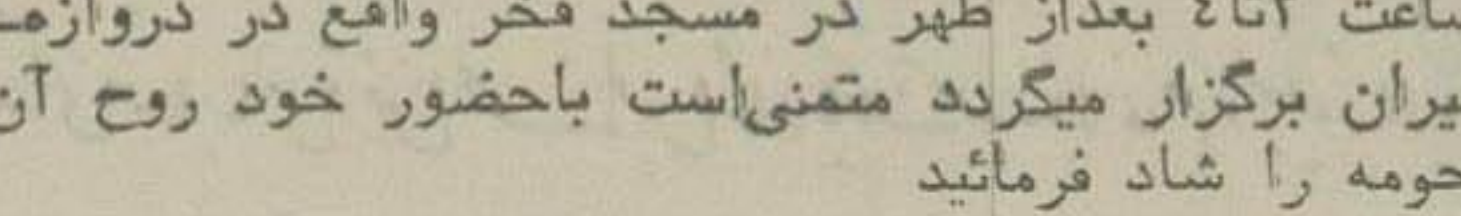 ساعت ۲تا٤ بعداز ظهر در مسجد فخر واقع در دروازه
یران برگزار میگردد متمنی‌است باحضور خود روح آن
حومه را شاد فرمائید